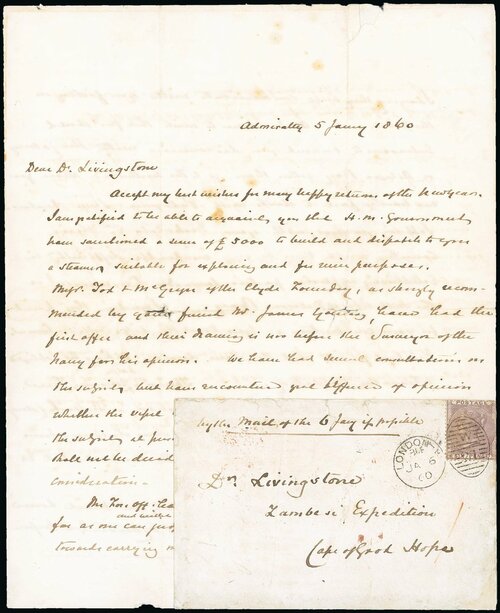 Admiralty 5 Jany 1860
Dear Dr. Livingstone
Accept my best wishes for many happy returns of the New Year.
I am gratified to be able to acquaint you that H. M. Government
have sanctioned a sum of £5000 to build and dispatch to you
a steamer suitable for exploring and for river purposes.
Messrs. Tod & McGregor of the Clyde Foundry, as strongly recom-
mended by your friend Mr. James Young, have had the
first offer and their drawing is now before the Surveyor of the
Navy for his opinion. We have had several consultations on
the subject but have encountered great difference of opinion
whether the vessel
the subject at
shall not be decided
consideration.
The For. Off.
and
far as one can
towards carrying
by the Mail of the 6 Jany if possible
POSTAGE
LONDON
JA 6
60
Dr. Livingstone
Zambesi Expedition
Cape of Good Hope